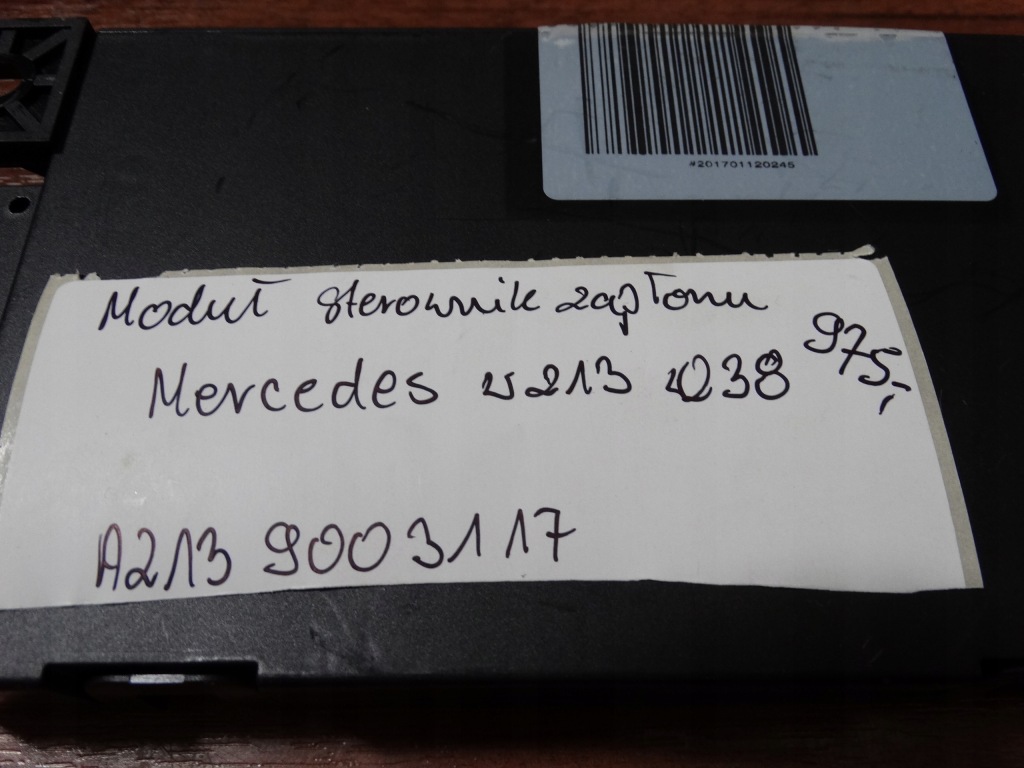 #201701120245
Moduł sterownik zapłonu
Mercedes w213 w238 975,-
A213 900 31 17